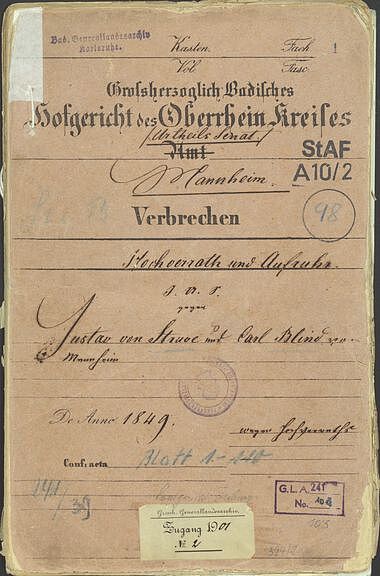 Bad. Generallandesarchiv
Karlsruhe.
Kasten Fach 1
Vol Fasc
Großherzoglich Badisches
Hofgericht des Oberrhein Kreises
(Urtheils Senat)
Amt
Mannheim.
StAF
A10/2
98
Verbrechen
Hochverrath und Aufruhr
J. U. S.
gegen
Gustav von Struve und Carl Blind von
Mannheim
De Anno 1849.
wegen Hochverraths
Confracta Blatt 1-140
241/39
G.L.A. 241
No. 104
103
Groẞh. Generallandesarchiv.
Zugang 1901
№ 2